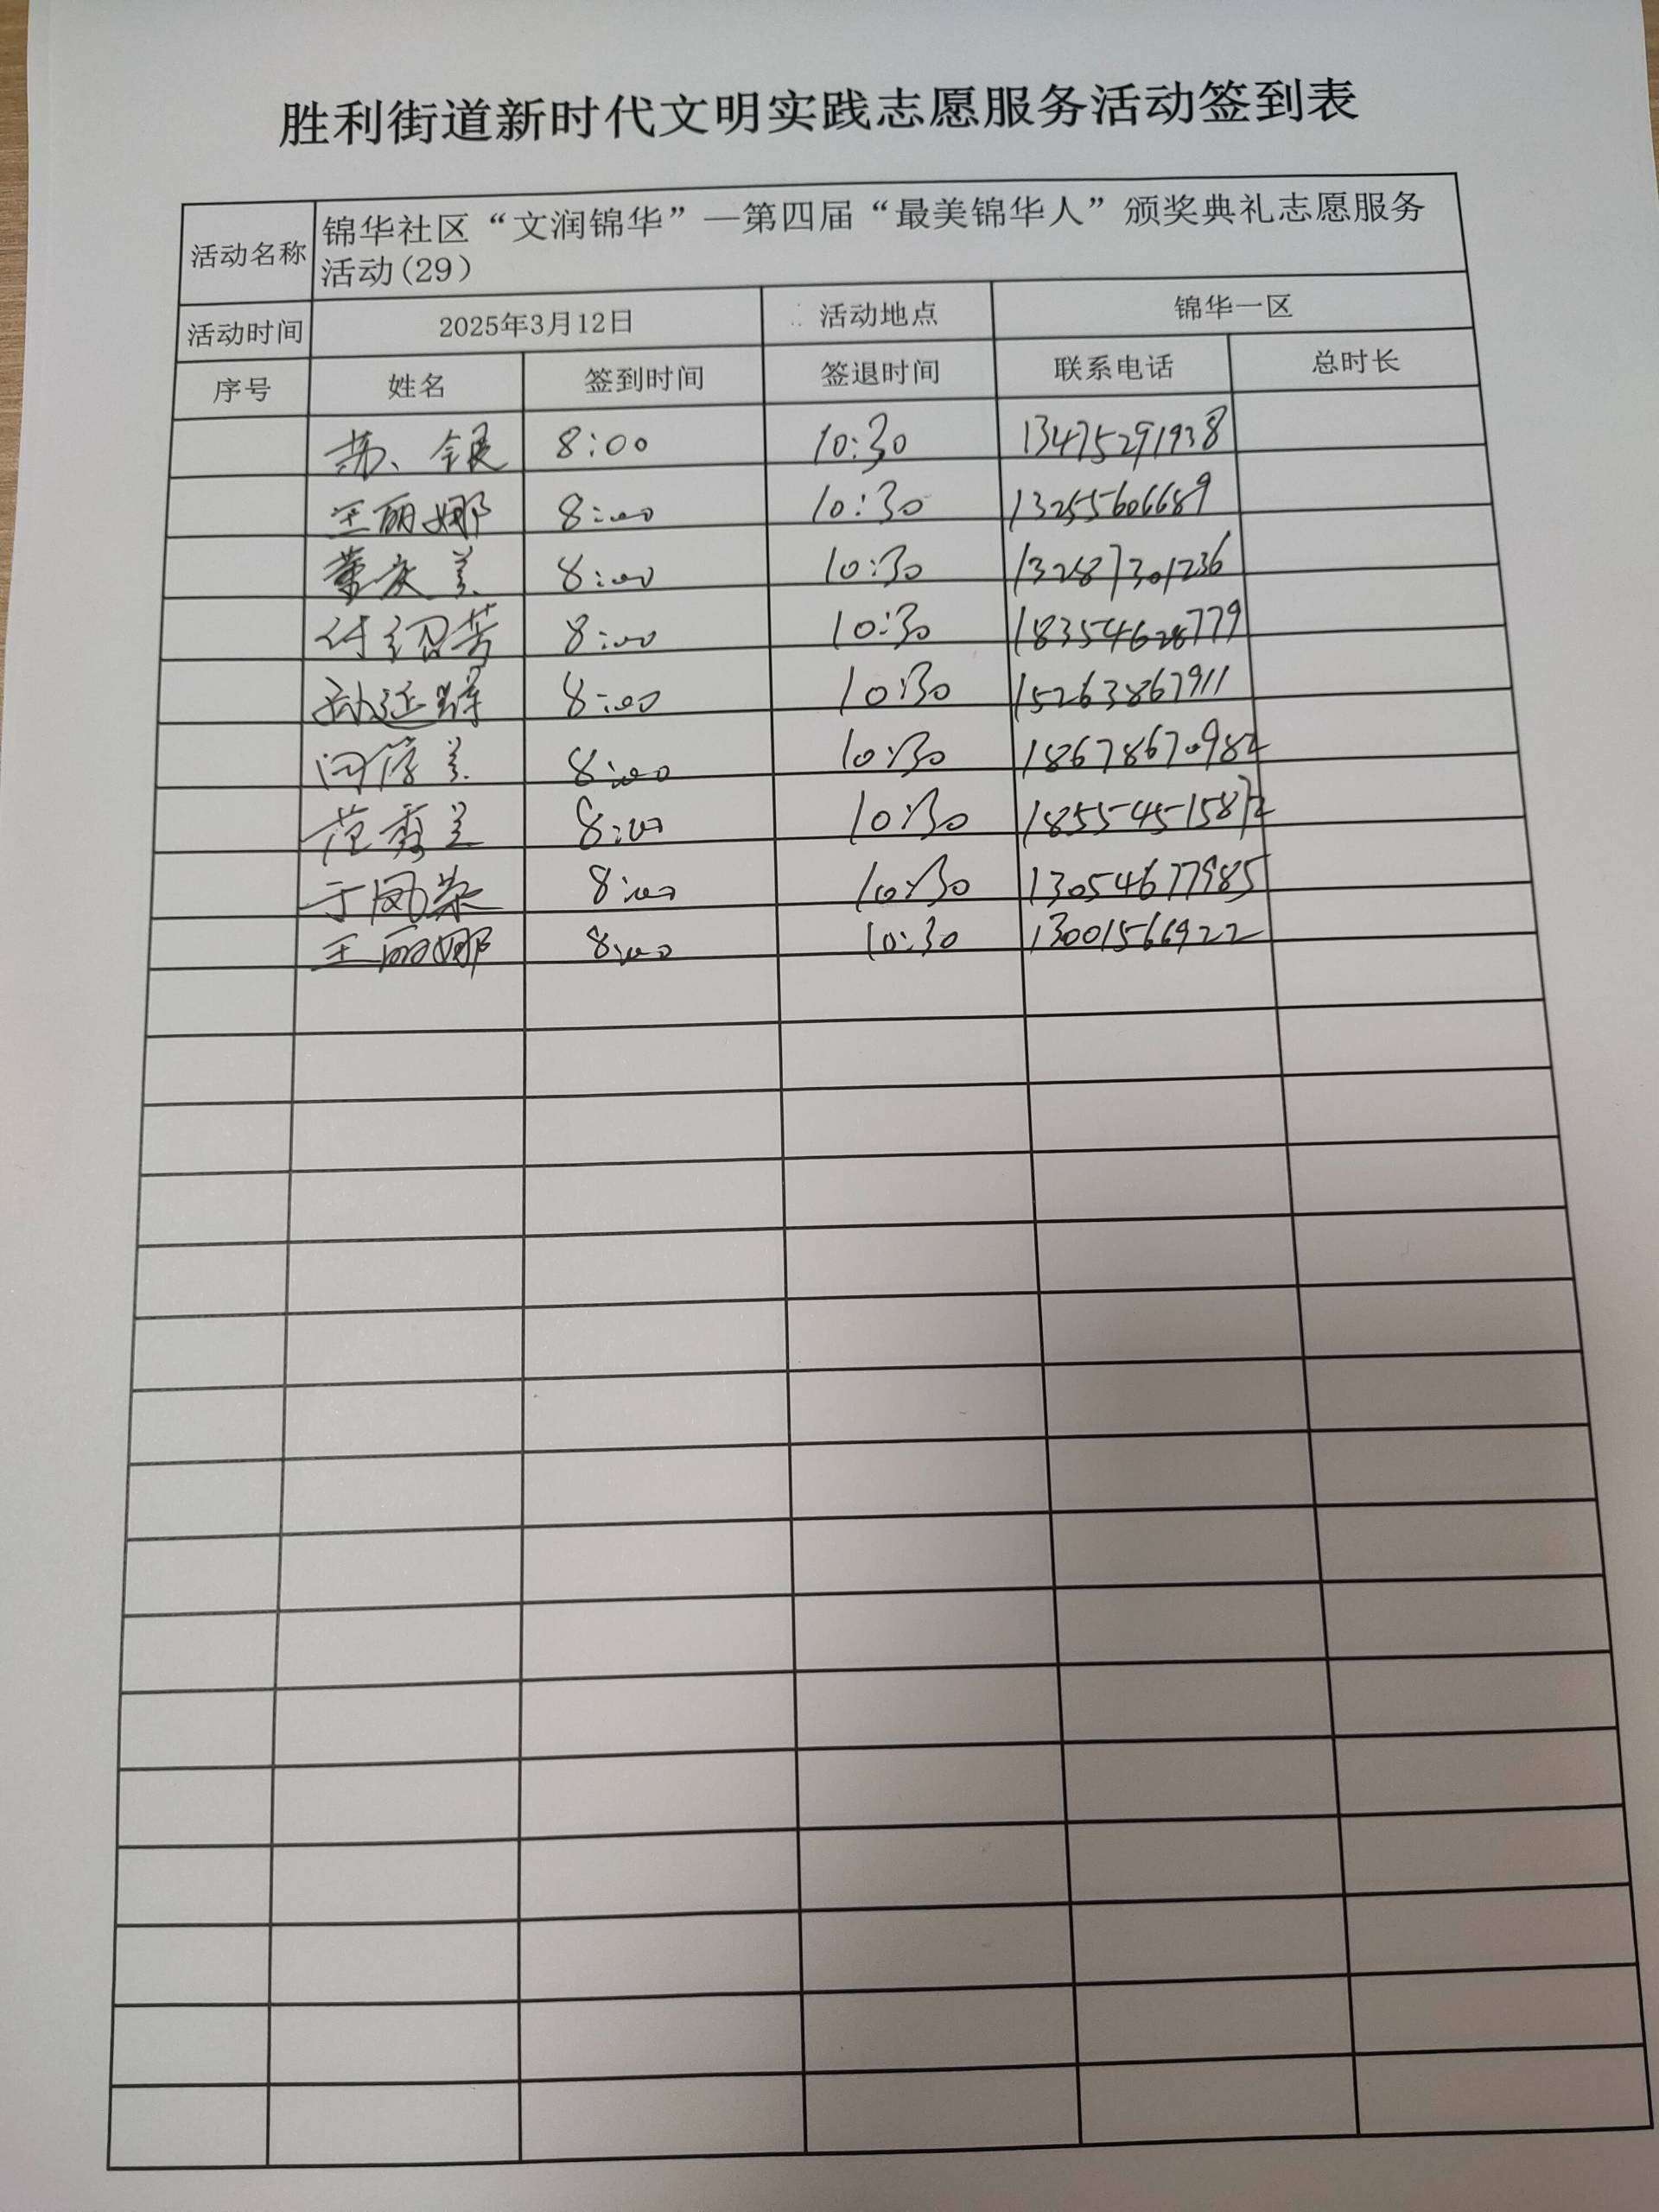 胜利街道新时代文明实践志愿服务活动签到表
活动名称 锦华社区“文润锦华”—第四届“最美锦华人”颁奖典礼志愿服务
活动(29)
活动时间 2025年3月12日 活动地点 锦华一区
序号 姓名 签到时间 签退时间 联系电话 总时长
苏、银 8:00 10:30 13475291938
王丽娜 8:00 10:30 13255606689
董庆兰 8:00 10:30 13287301236
付绍芳 8:00 10:30 18354628779
8:00 10:30 15263867911
8:00 10:30 18678670982
范秀兰 8:00 10:30
于凤荣 8:00 10:30 13054677985
王丽娜 8:00 10:30 13001566922